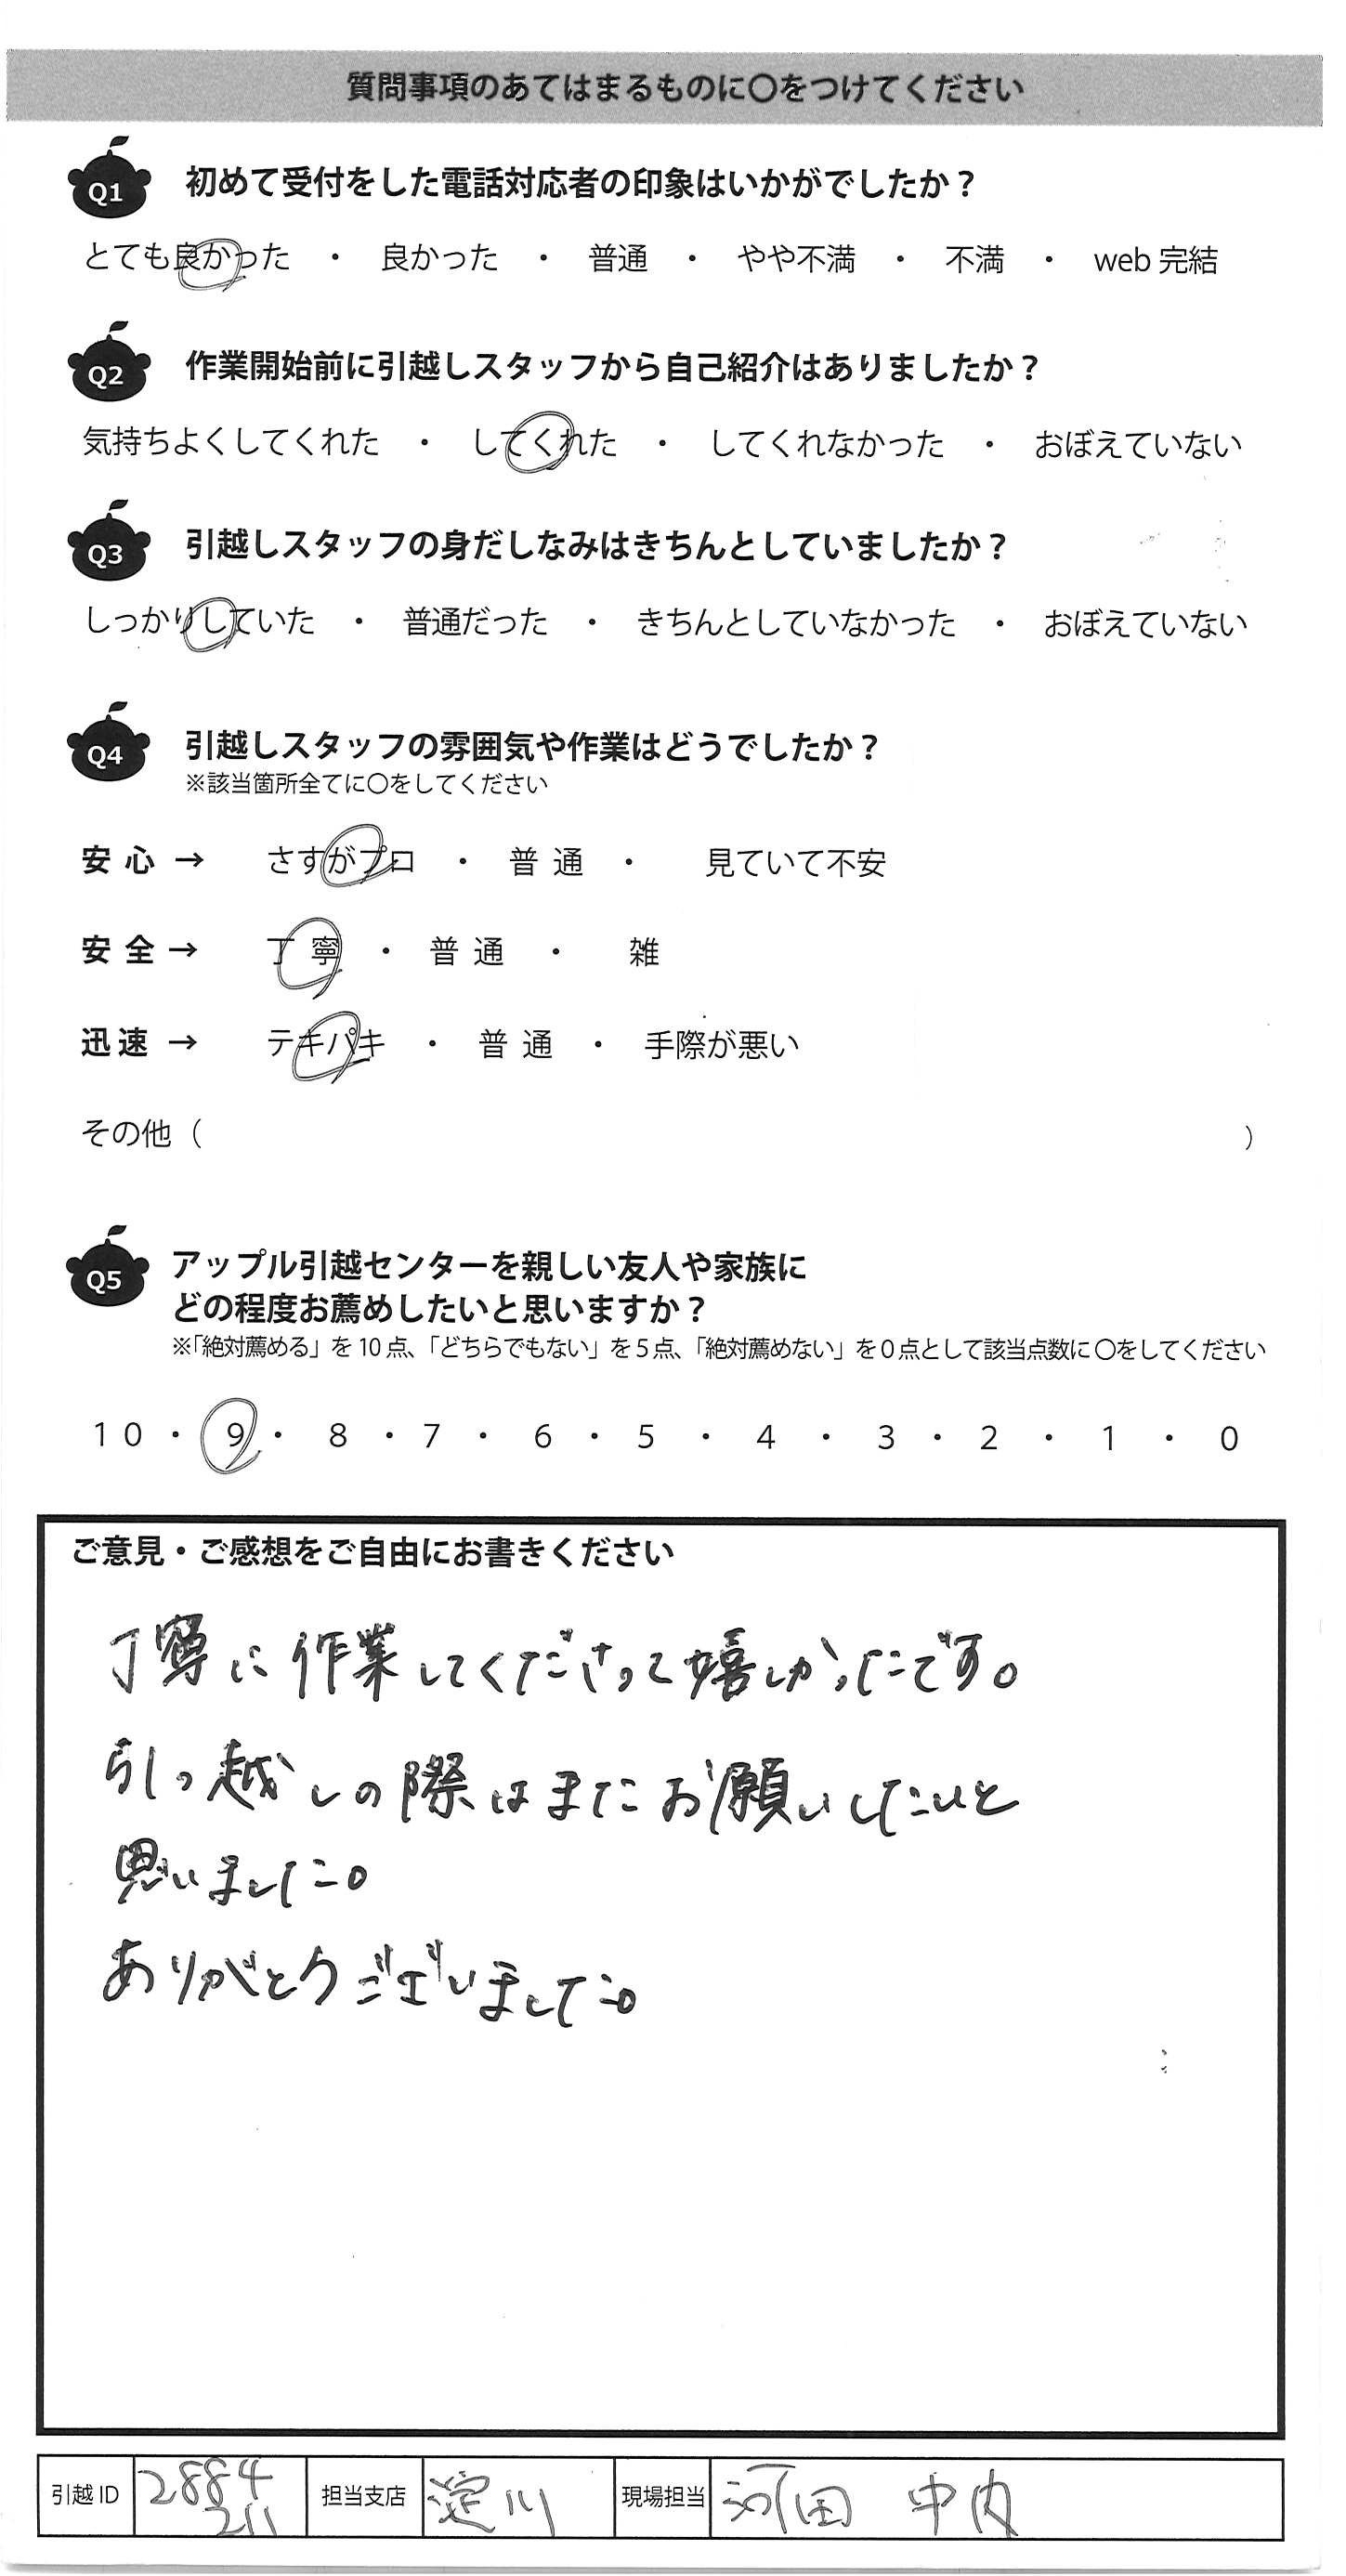 質問事項のあてはまるものに〇をつけてください
Q1 初めて受付をした電話対応者の印象はいかがでしたか？
とても良かった ・ 良かった ・ 普通 ・ やや不満 ・ 不満 ・ web 完結
Q2 作業開始前に引越しスタッフから自己紹介はありましたか？
気持ちよくしてくれた ・ してくれた ・ してくれなかった ・ おぼえていない
Q3 引越しスタッフの身だしなみはきちんとしていましたか？
しっかりしていた ・ 普通だった ・ きちんとしていなかった ・ おぼえていない
Q4 引越しスタッフの雰囲気や作業はどうでしたか？
※該当箇所全てに〇をしてください
安心 → さすがプロ ・ 普通 ・ 見ていて不安
安全 → 丁寧 ・ 普通 ・ 雑
迅速 → テキパキ ・ 普通 ・ 手際が悪い
その他（ ）
Q5 アップル引越センターを親しい友人や家族に
どの程度お薦めしたいと思いますか？
※「絶対薦める」を10点、「どちらでもない」を5点、「絶対薦めない」を0点として該当点数に〇をしてください
10 ・ 9 ・ 8 ・ 7 ・ 6 ・ 5 ・ 4 ・ 3 ・ 2 ・ 1 ・ 0
ご意見・ご感想をご自由にお書きください
丁寧に作業してくださって嬉しかったです。
引っ越しの際はまたお願いしたいと
思いました。
ありがとうございました。
引越ID 2884 担当支店 淀川 現場担当 河田 中内
211